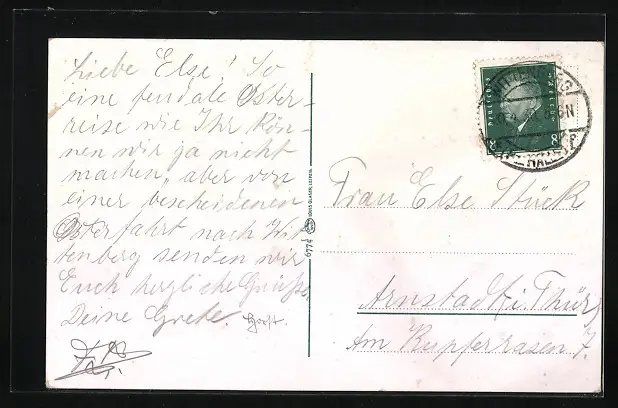 Liebe Else! So
eine feudale Oster-
reise wie Ihr kön-
nen wir ja nicht
machen, aber von
einer bescheidenen
Osterfahrt nach Wit-
tenberg senden wir
Euch herzliche Grüße,
Deine Grete. Horst.
Frau Else Stück
Arnstadt i. Thür.
Am Rupferrasen 7.
LOUIS GLASER, LEIPZIG
6774
8 8